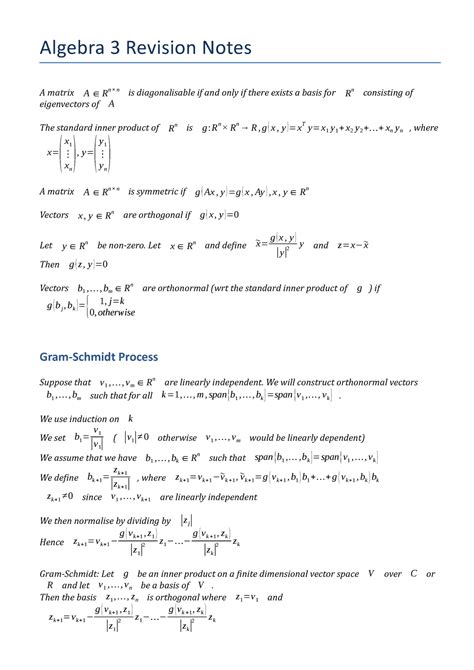 Algebra 3 Revision Notes
A matrix A ∈ Rⁿˣⁿ is diagonalisable if and only if there exists a basis for Rⁿ consisting of
eigenvectors of A
The standard inner product of Rⁿ is g : Rⁿ × Rⁿ → R , g(x , y) = xᵀ y = x₁ y₁ + x₂ y₂ + … + xₙ yₙ , where
x = (x₁ ⋮ xₙ) , y = (y₁ ⋮ yₙ)
A matrix A ∈ Rⁿˣⁿ is symmetric if g(Ax , y) = g(x , Ay) , x , y ∈ Rⁿ
Vectors x , y ∈ Rⁿ are orthogonal if g(x , y) = 0
Let y ∈ Rⁿ be non-zero. Let x ∈ Rⁿ and define x̃ = g(x , y)/|y|² y and z = x − x̃
Then g(z , y) = 0
Vectors b₁ , … , bₘ ∈ Rⁿ are orthonormal (wrt the standard inner product of g ) if
g(bⱼ , bₖ) = { 1, j = k
0, otherwise
Gram-Schmidt Process
Suppose that v₁ , … , vₘ ∈ Rⁿ are linearly independent. We will construct orthonormal vectors
b₁ , … , bₘ such that for all k = 1 , … , m , span{b₁ , … , bₖ} = span{v₁ , … , vₖ} .
We use induction on k
We set b₁ = v₁/|v₁| ( |v₁| ≠ 0 otherwise v₁ , … , vₘ would be linearly dependent)
We assume that we have b₁ , … , bₖ ∈ Rⁿ such that span{b₁ , … , bₖ} = span{v₁ , … , vₖ}
We define bₖ₊₁ = zₖ₊₁/|zₖ₊₁| , where zₖ₊₁ = vₖ₊₁ − ṽₖ₊₁ , ṽₖ₊₁ = g(vₖ₊₁ , b₁) b₁ + … + g(vₖ₊₁ , bₖ) bₖ
zₖ₊₁ ≠ 0 since v₁ , … , vₖ₊₁ are linearly independent
We then normalise by dividing by |zⱼ|
Hence zₖ₊₁ = vₖ₊₁ − g(vₖ₊₁ , z₁)/|z₁|² z₁ − … − g(vₖ₊₁ , zₖ)/|zₖ|² zₖ
Gram-Schmidt: Let g be an inner product on a finite dimensional vector space V over C or
R and let v₁ , … , vₙ be a basis of V .
Then the basis z₁ , … , zₙ is orthogonal where z₁ = v₁ and
zₖ₊₁ = vₖ₊₁ − g(vₖ₊₁ , z₁)/|z₁|² z₁ − … − g(vₖ₊₁ , zₖ)/|zₖ|² zₖ